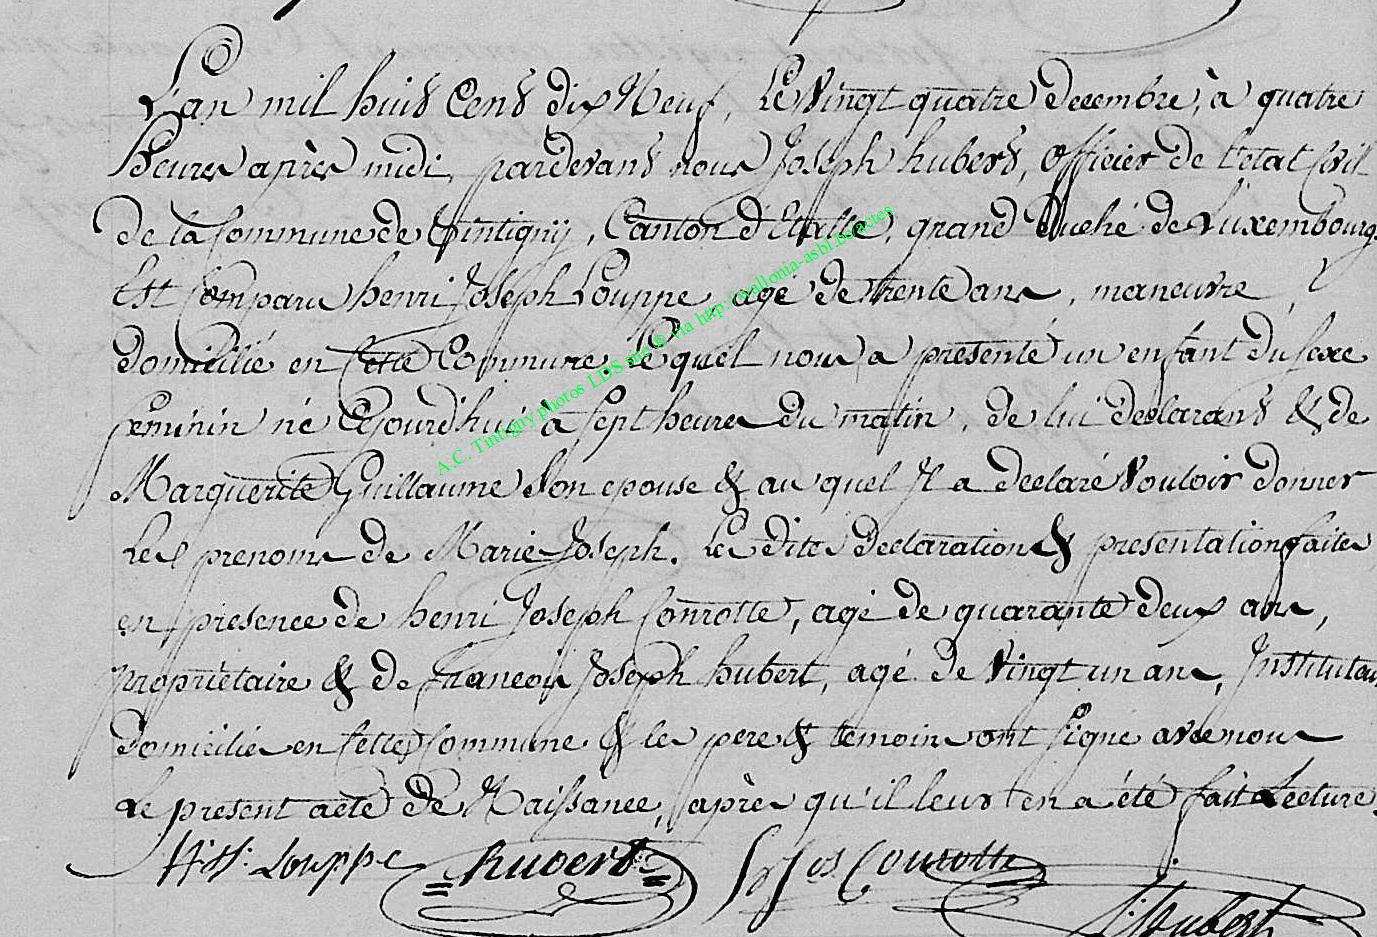 L'an mil huit Cent dix Neuf, Le Vingt quatre decembre, à quatre
heures après midi, pardevant nous Joseph hubert, officier de l'etat Civil
de la Commune de tintigny, Canton d'Etalle, grand duché de Luxembourg
Est Comparu henri Joseph Louppe, agé de trente ans, maneuvre,
domicilié en Cette Commune. Le quel nous a presenté un enfant du sexe
feminin né Cejourd'hui à sept heures du matin, de lui declarant & de
Marguerite Guillaume son epouse & au quel Il a declaré Vouloir donner
Les prenoms de Marie Joseph. Les dites declaration & presentation faites
en presence de henri Joseph Conrotte, agé de quarante deux ans,
proprietaire & de francois Joseph hubert, agé de Vingt un ans, Instituteur
domiciliés en Cette Commune & les pere & temoins ont signé avec nous
Le present acte de Naissance, après qu'il leur en a été fait Lecture.
H: J: Louppe hubert Jos Conrotte
J: hubert
A.C. Tintigny photos LDS via http://wallonia-asbl.be/actes